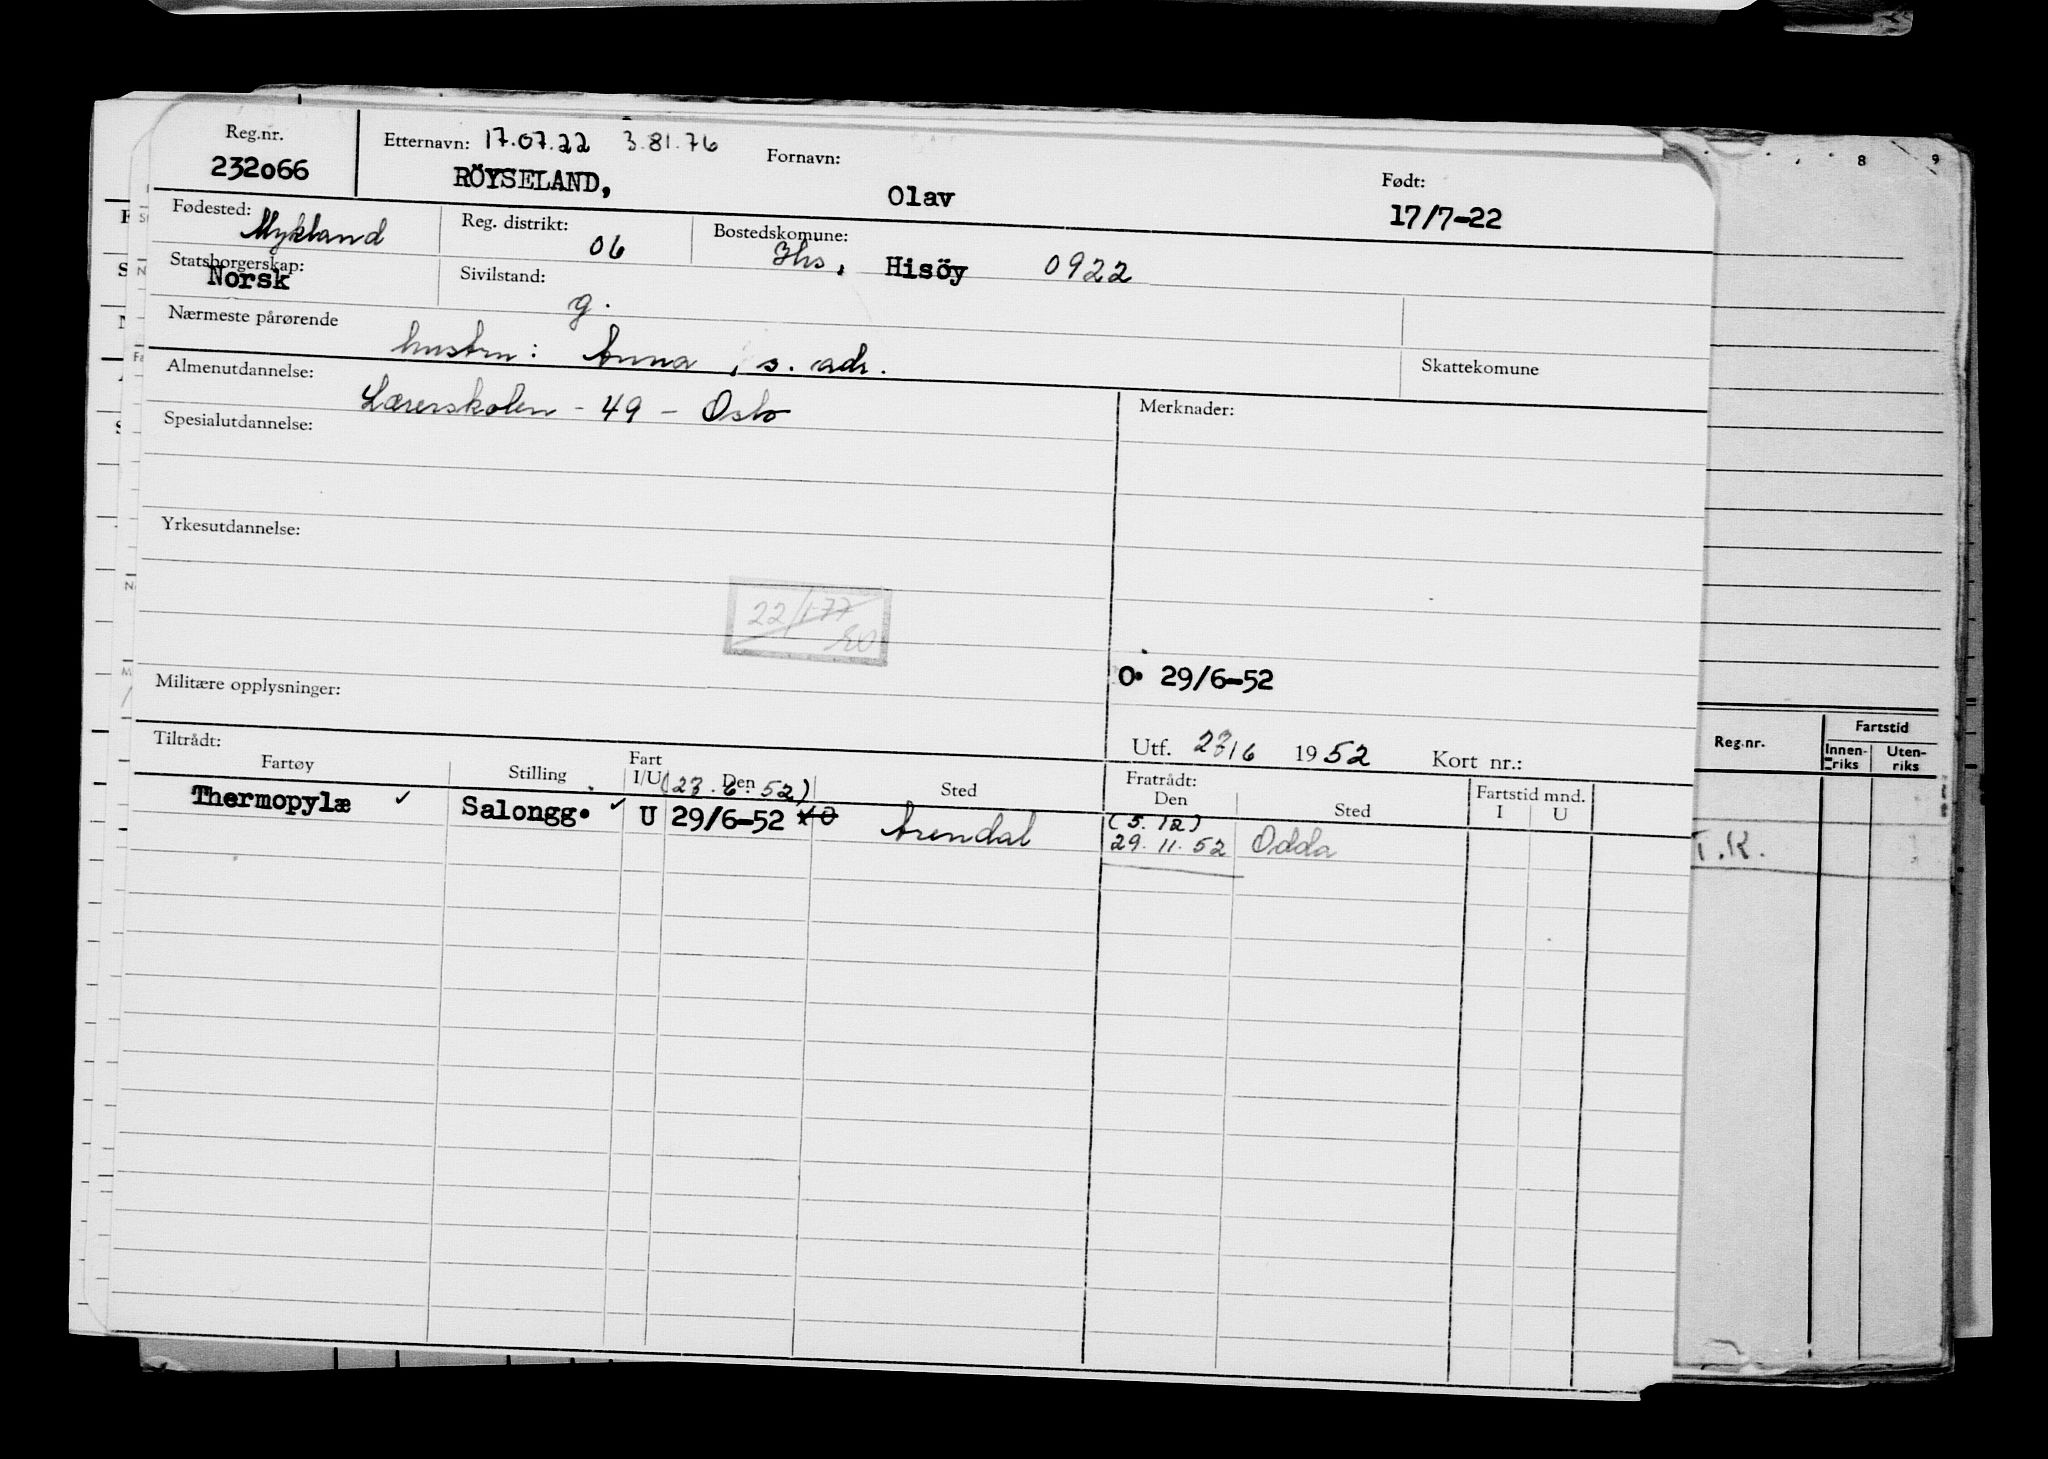 8 9
Reg.nr. Etternavn: 17.07.22 3.81.76 Fornavn: Født:
232066 RÖYSELAND, Olav 17/7-22
Fødested: Mykland Reg. distrikt: 06 Bostedskomune: His, Hisöy 0922
Statsborgerskap: Norsk Sivilstand: g.
Nærmeste pårørende hustru: Anna, s. adr. Skattekomune
Almenutdannelse: Lærerskolen - 49 - Oslo Merknader:
Spesialutdannelse:
Yrkesutdannelse:
22/1-77
O. 29/6-52
Militære opplysninger:
Utf. 23/6 1952 Kort nr.:
Tiltrådt: Fratrådt: Fartstid mnd.
Fartøy Stilling Fart I/U Den Sted Den Sted I U
(23.6.52) (5.12)
Thermopylæ ✓ Salongg. ✓ U 29/6-52 Arendal 29.11.52 Odda
Reg.nr. Fartstid
Innen-riks Uten-riks
T.K.